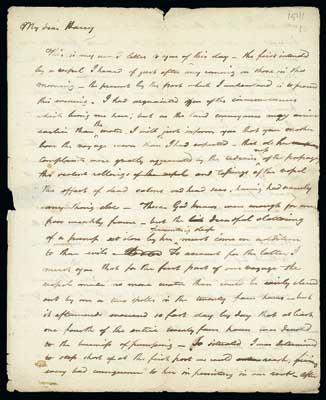 My dear Harry
This is my second letter to you of this day – the first intended
by a vessel I heard of just after my coming on shore in this
morning – the present by the post which I understand is to proceed
this evening. I had acquainted you of the circumstances
which having me here, but as the land conveyance may arrive
earlier than the water, I will just inform you that your mother
bore the voyage worse than I had expected – that all her
complaints were greatly aggravated by the tediousness of the passage,
the violent rollings of the vessel and tossings of the vessel
the effect of dead calms and head seas, having had scarcely
any thing else – These God knows were enough for one
poor weakly frame – but the dreadful clattering
of a pump set close by her, preventing sleep, must come in addition
to these evils – To account for the latter, I
must say that for the first part of our voyage the
vessel made no more water than could be easily cleared
out by one or two spells in the twenty four hours – but
it afterwards increased so fast day by day that at least
one fourth of the entire twenty four hours was devoted
to the business of pumping – So situated I was determined
to stop short at the first port we could reach, giving
every bad consequence to her in persisting in our route after